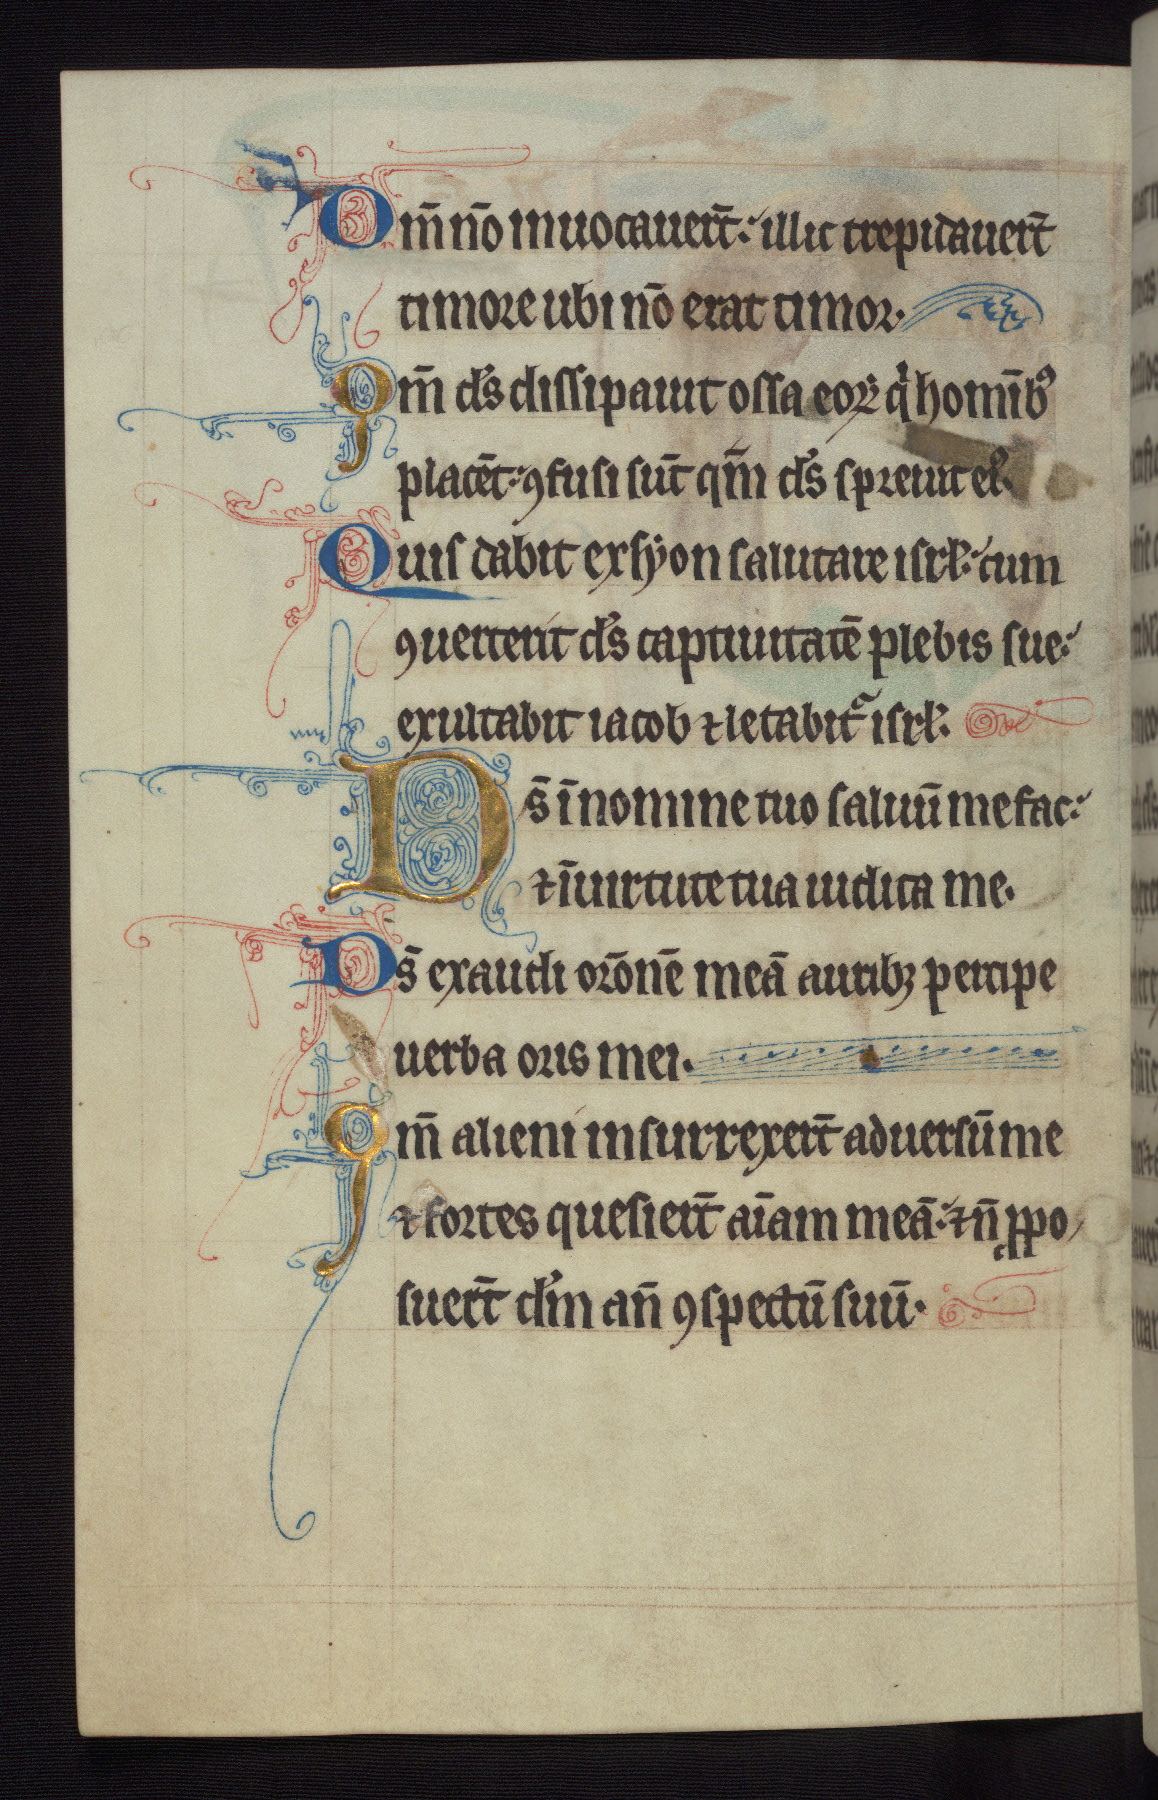 Dm̄ nō inuocauer̄t: illic trepidauer̄t
timore ubi nō erat timor.
Qm̄ d's dissipauit ossa eoꝝ q̇ homīb9
placēt: ꝯfusi sūt qm̄ d's spreuit eos.
Quis dabit ex syon salutare isrł: cum
ꝯuerterit d's captiuitatē plebis sue:
exultabit iacob ⁊ letabit᷑ isrł.
Ds̄ ī nomine tuo saluū me fac:
⁊ ī uirtute tua iudica me.
Ds̄ exaudi orōnē meā auribꝫ percipe
uerba oris mei.
Qm̄ alieni insurrexer̄t aduersū me
⁊ fortes quesier̄t aīam meā: ⁊ n̄ ꝓpo
suer̄t d'm an̄ ꝯspectū suū.